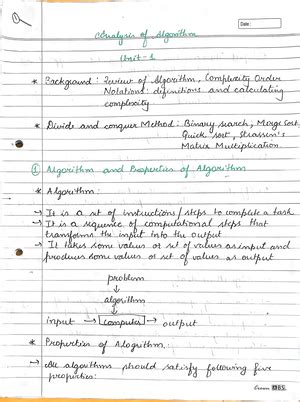 Date:
Analysis of Algorithm
Unit-1
* Background: Review of Algorithm, Complexity Order
Notations: definitions and calculating
complexity
* Divide and conquer Method: Binary search, Merge Sort,
Quick sort, Strassen's
Matrix Multiplication
① Algorithm and Properties of Algorithm
* Algorithm:
→ It is a set of instructions/steps to complete a task
→ It is a sequence of computational steps that
transforms the input into the output
→ It takes some values or set of values as input and
produces some values or set of values as output
problem
↓
algorithm
↓
input → computer → output
* Properties of Algorithm:
→ All algorithms should satisfy following five
properties: